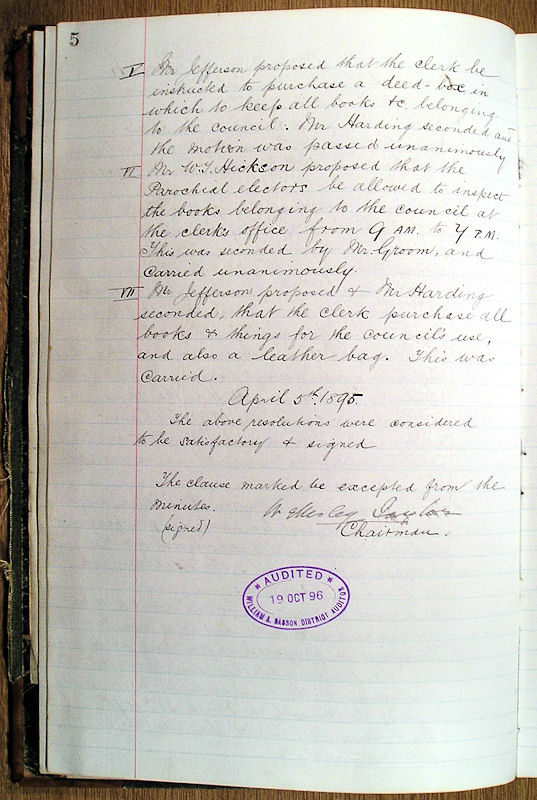 5
V Mr Jefferson proposed that the clerk be
instructed to purchase a deed-box in
which to keep all books & c. belonging
to the council. Mr Harding seconded and
the motion was passed unanimously
VI Mr W.T. Hickson proposed that the
Parochial electors be allowed to inspect
the books belonging to the council at
the clerk's office from 9 A.M. to 7 P.M.
This was seconded by Mr. Groom, and
carried unanimously.
VII Mr Jefferson proposed & Mr Harding
seconded, that the clerk purchase all
books & things for the council's use,
and also a leather bag. This was
carried.
April 5th, 1895.
The above resolutions were considered
to be satisfactory & signed
The clause marked be excepted from the
minutes.
(signed)
Chairman.
AUDITED
19 OCT 96
WILLIAM A. CASSON DISTRICT AUDITOR